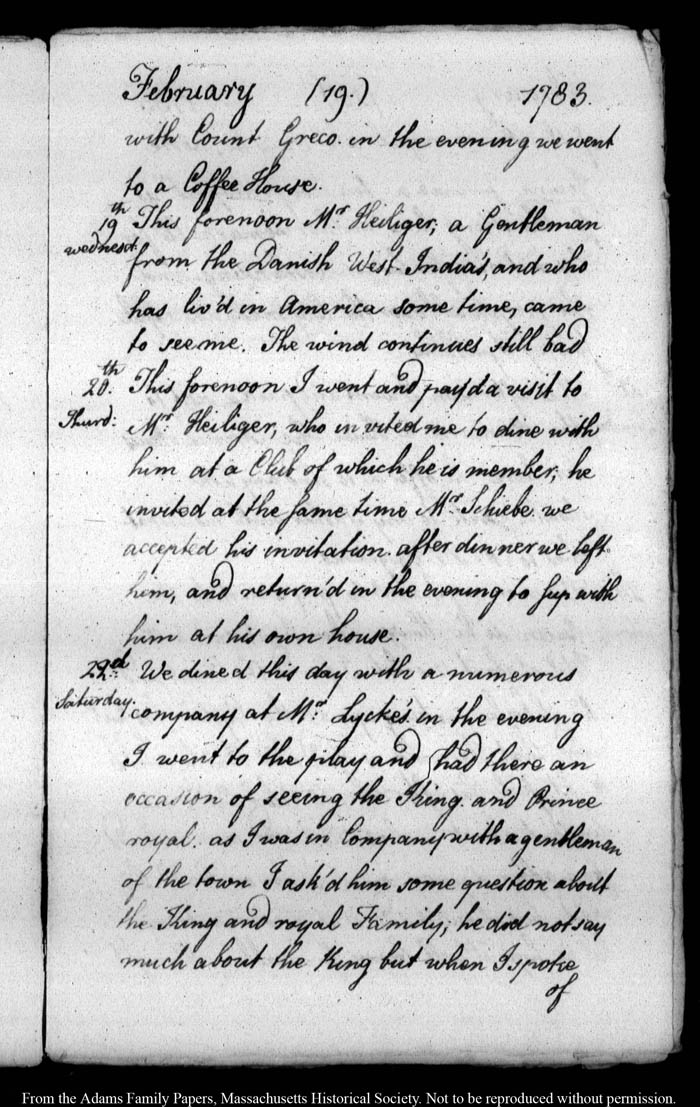 February (19.) 1783.
with Count Greco. in the evening we went
to a Coffee House.
19th This forenoon Mr. Heiliger, a Gentleman
wednesd: from the Danish West-India's, and who
has liv'd in America some time, came
to see me. The wind continues still bad
20th. This forenoon I went and pay'd a visit to
Thurd: Mr. Heiliger, who invited me to dine with
him at a Club of which he is member; he
invited at the same time Mr. Schiebe. we
accepted his invitation. after dinner we left
him, and return'd in the evening to sup with
him at his own house.
22d. We dined this day with a numerous
Saturday. company at Mr. Lycke's. in the evening
I went to the play and had there an
occasion of seeing the King. and Prince
royal. as I was in Company with a gentleman
of the town I ask'd him some question about
the King and royal Family; he did not say
much about the King but when I spoke
of
From the Adams Family Papers, Massachusetts Historical Society. Not to be reproduced without permission.